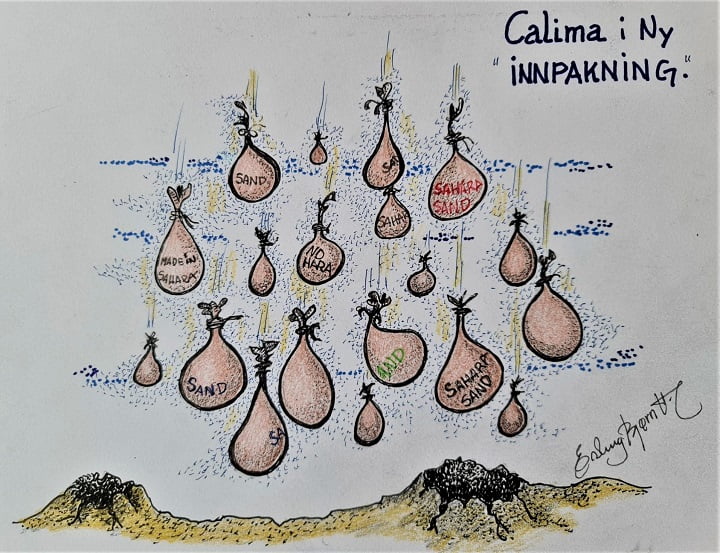 Calima i Ny
"iNNPAKNiNG."
SAND
SA
SAHARA
SAND
SAHA
MADE iN
SAHARA
NO
HARA
SAND
AND
SAHARA
SAND
SA